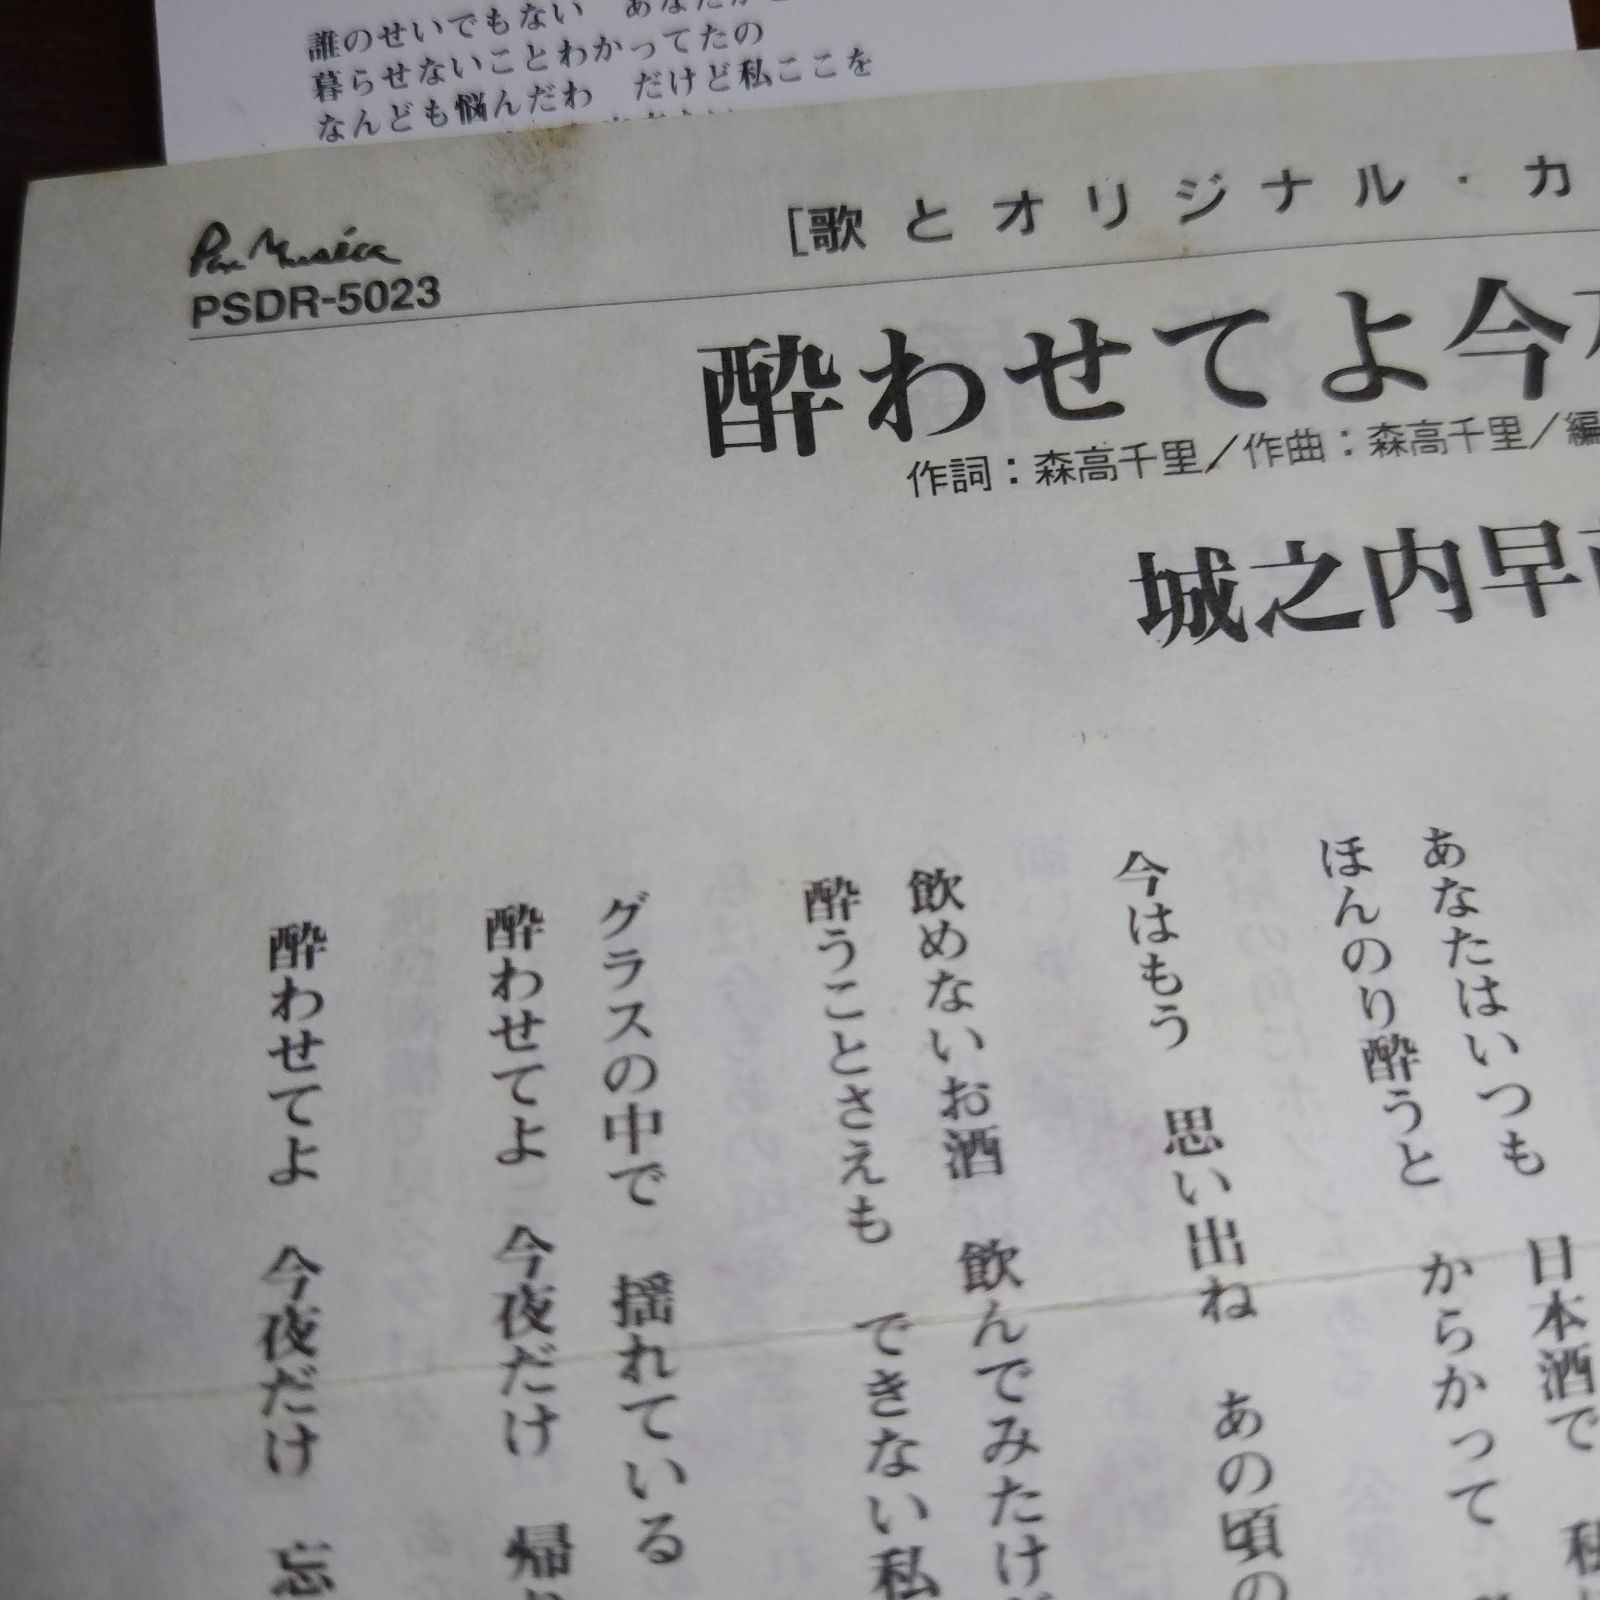 誰のせいでもない
暮らせないことわかってたの
なんども悩んだわ　だけど私ここを
Pan Musica
PSDR-5023
[歌とオリジナル・カ
酔わせてよ今
作詞：森高千里／作曲：森高千里／編
城之内早
あなたはいつも　日本酒で　私
ほんのり酔うと　からかって
今はもう　思い出ね　あの頃の
飲めないお酒　飲んでみたけど
酔うことさえも　できない私
グラスの中で　揺れている
酔わせてよ　今夜だけ　帰り
酔わせてよ　今夜だけ　忘